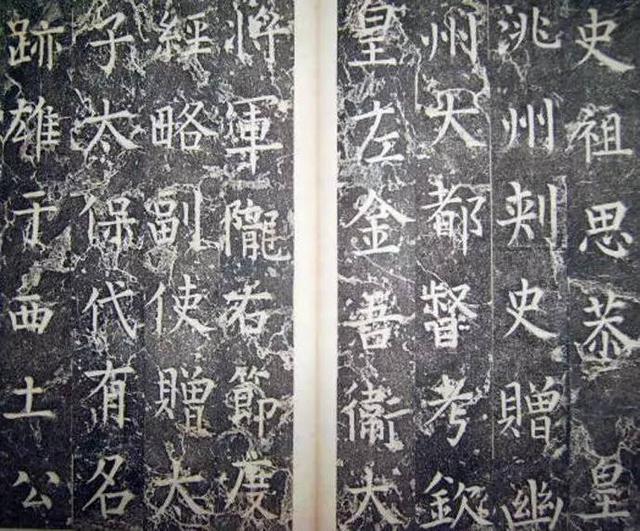 史祖思恭皇
洮州刾史贈幽
州大都督考欽
皇左金吾衛大
將軍隴右節度
經略副使贈太
子太保代有名
跡雄于西土公